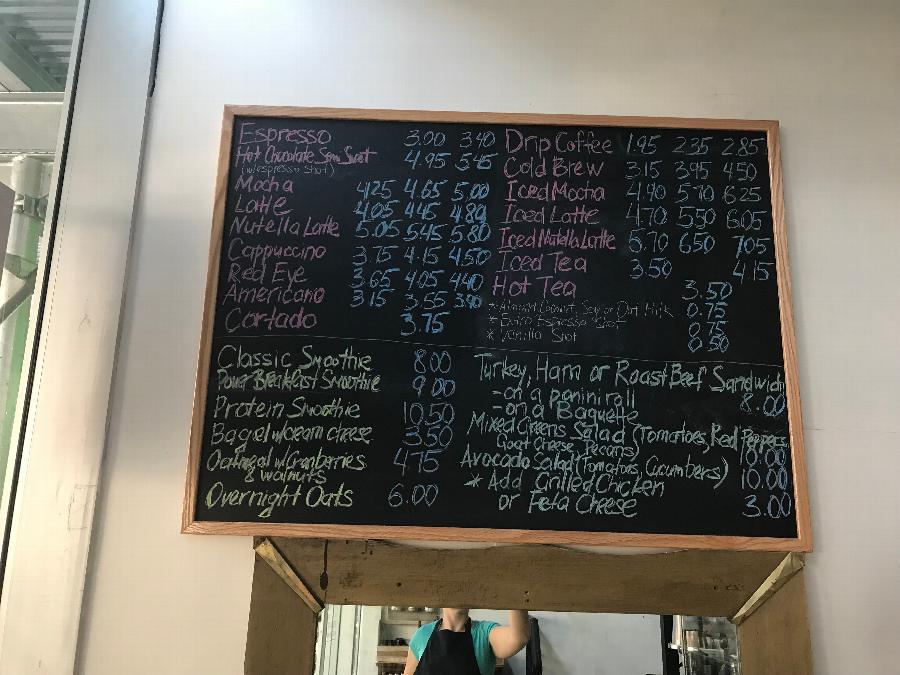 Espresso 3.00 3.40
Hot Chocolate Semi Sweet 4.95 5.45
(w/espresso shot)
Mocha 4.25 4.65 5.00
Latte 4.05 4.45 4.80
Nutella Latte 5.05 5.45 5.80
Cappuccino 3.75 4.15 4.50
Red Eye 3.65 4.05 4.40
Americano 3.15 3.55 3.90
Cortado 3.75
Drip Coffee 1.95 2.35 2.85
Cold Brew 3.15 3.95 4.50
Iced Mocha 4.90 5.70 6.25
Iced Latte 4.70 5.50 6.05
Iced Nutella Latte 5.70 6.50 7.05
Iced Tea 3.50 4.15
Hot Tea 3.50
* Almond, Coconut, Soy or Oat Milk 0.75
* Extra Espresso Shot 0.75
* Vanilla Shot 0.50
Classic Smoothie 8.00
Power Breakfast Smoothie 9.00
Protein Smoothie 10.50
Bagel w/cream cheese 3.50
Oatmeal w/Cranberries 4.75
& walnuts
Overnight Oats 6.00
Turkey, Ham or Roast Beef Sandwich
- on a panini roll 8.00
- on a Baguette
Mixed Greens Salad (Tomatoes, Red Peppers,
Goat Cheese, Pecans) 10.00
Avocado Salad (Tomatoes, Cucumbers) 10.00
* Add Grilled Chicken
or Feta Cheese 3.00